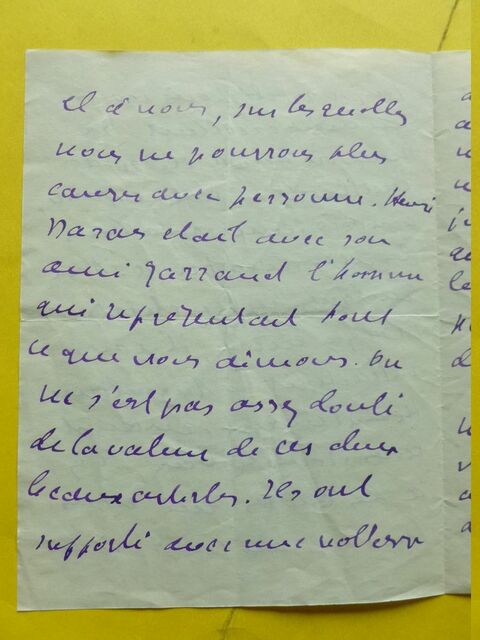 et à nous, sur lesquelles
nous ne pourrons plus
causer avec personne. Henri
était avec son
ami l'homme
qui représentait tout
ce que nous aimons. On
ne s'est pas assez douté
de la valeur de ces deux
beaux artistes. Ils ont
supporté avec une noblesse